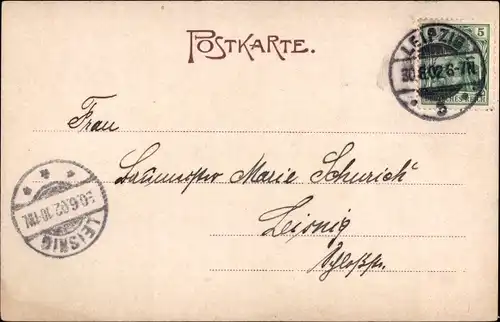 POSTKARTE.
5
LEIPZIG
30.6.02.6-7N.
5
Frau
Baumeister Marie Schurich
Leisnig
Schloßstr.
30.6.02.10-11N.
LEISNIG